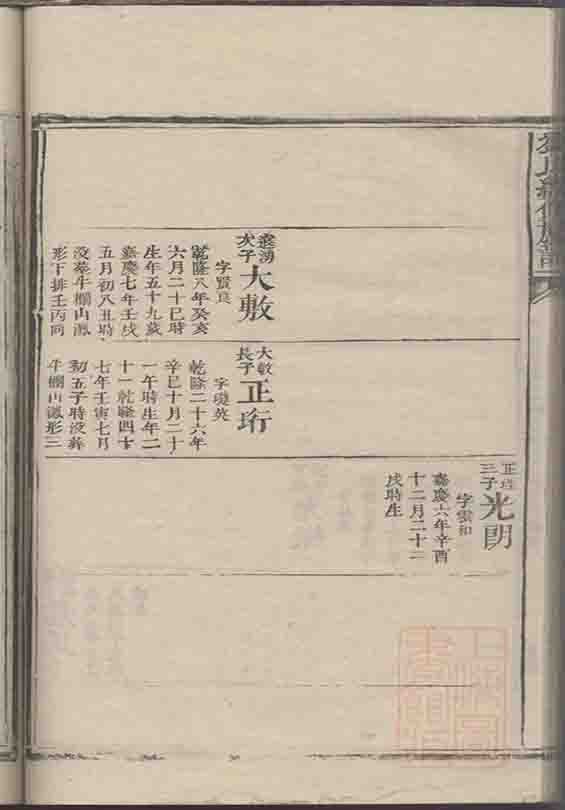 氏續修族譜
次子大敷
字賢良
乾隆八年癸亥
六月二十巳時
生年五十九歲
嘉慶七年壬戌
五月初八丑時
没葬牛欄山鳳
形下排壬丙向
大敷長子正珩
字
乾隆二十六年
辛巳十月二十
一午時生年二
十一乾隆四十
七年壬寅七月
初五子時没葬
牛欄山鳳形三
三子光朗
字雲和
嘉慶六年辛酉
十二月二十二
戌時生